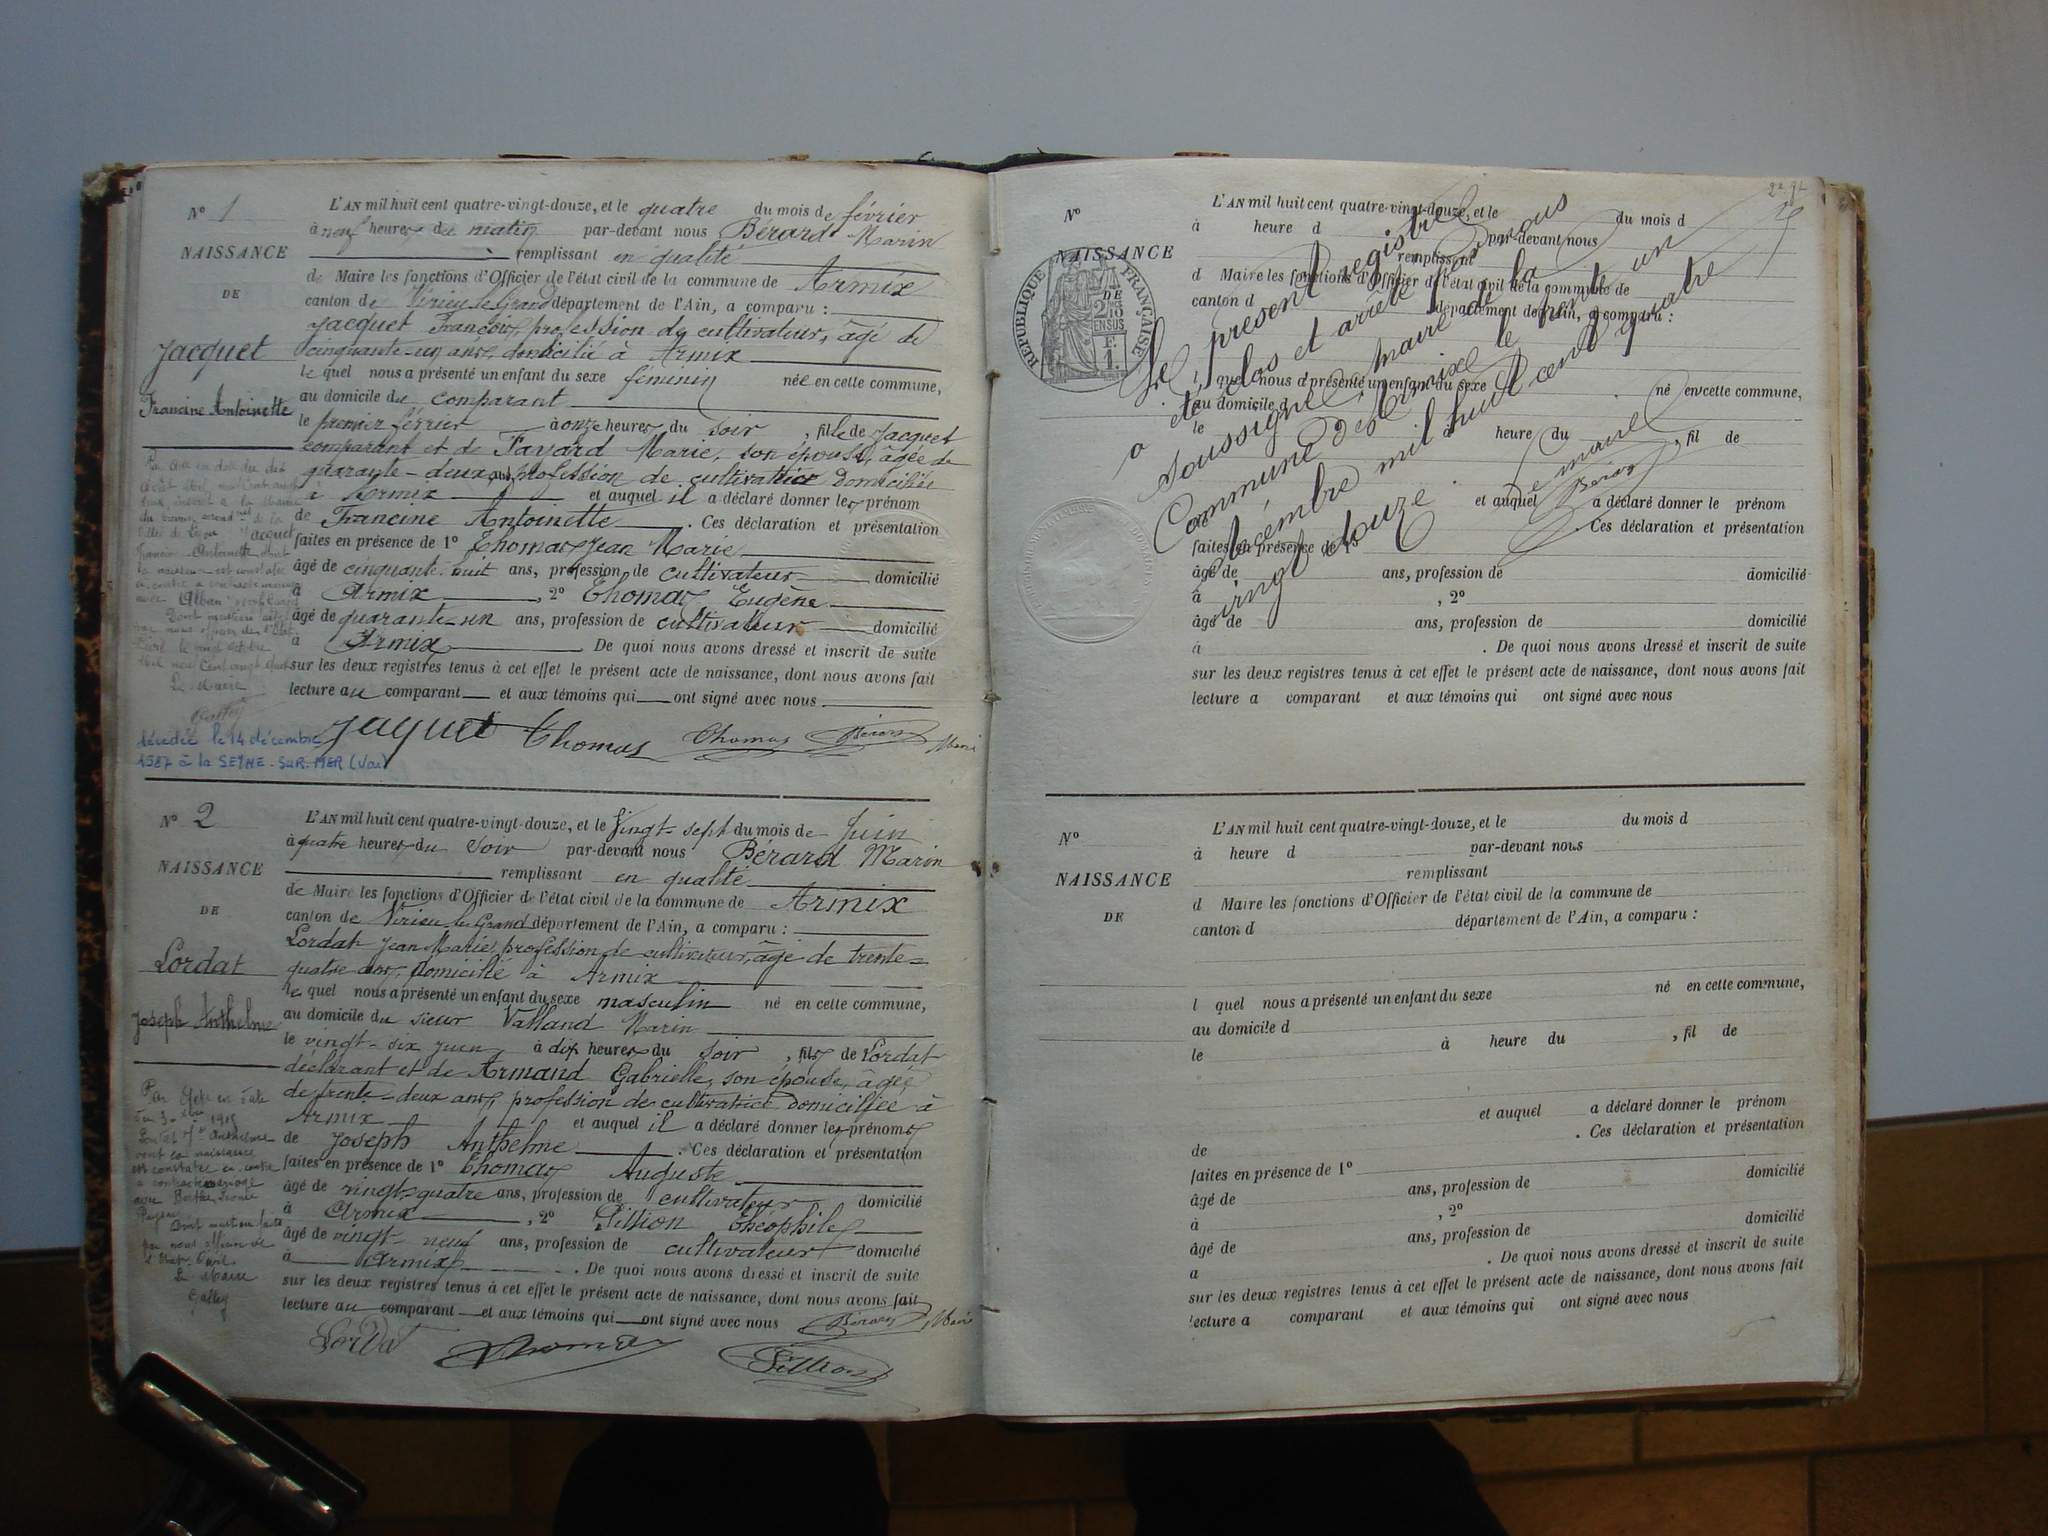 N° 1
NAISSANCE
DE
Jacquet
Francine Antoinette
L'AN mil huit cent quatre-vingt-douze, et le quatre du mois de février
à neuf heures du matin par-devant nous Bérard Marin
remplissant en qualité
de Maire les fonctions d'Officier de l'état civil de la commune de Armix
canton de Virieu le Grand département de l'Ain, a comparu :
Jacquet François, profession de cultivateur, âgé de
cinquante-un ans, domicilié à Armix
le quel nous a présenté un enfant du sexe féminin née en cette commune,
au domicile du comparant
le premier février à onze heures du soir, fille de Jacquet
comparant et de Favard Marie, son épouse, âgée de
quarante-deux ans, profession de cultivatrice domiciliée
à Armix et auquel il a déclaré donner les prénom
de Francine Antoinette. Ces déclaration et présentation
faites en présence de 1° Thomas Jean Marie
âgé de cinquante-huit ans, profession de cultivateur domicilié
à Armix, 2° Thomas Eugène
âgé de quarante-un ans, profession de cultivateur domicilié
à Armix De quoi nous avons dressé et inscrit de suite
sur les deux registres tenus à cet effet le présent acte de naissance, dont nous avons fait
lecture au comparant et aux témoins qui ont signé avec nous
Jaquet Thomas Thomas Bérard Mari
Antoinette dont
la naissance est constatée
ci contre a contracté mariage
avec Alban
Le Maire
décédée le 14 décembre
1987 à la SEYNE-SUR-MER (Var)
N° 2
NAISSANCE
DE
Lordat
Joseph Anthelme
L'AN mil huit cent quatre-vingt-douze, et le vingt-sept du mois de Juin
à quatre heures du soir par-devant nous Bérard Marin
remplissant en qualité
de Maire les fonctions d'Officier de l'état civil de la commune de Armix
canton de Virieu le Grand département de l'Ain, a comparu :
Lordat Jean Marie, profession de cultivateur, âgé de trente-
quatre ans, domicilié à Armix
le quel nous a présenté un enfant du sexe masculin né en cette commune,
au domicile du sieur Valland Marin
le vingt-six juin à dix heures du soir, fils de Lordat
déclarant et de Armand Gabrielle, son épouse, âgée
de trente-deux ans, profession de cultivatrice domiciliée à
Armix et auquel il a déclaré donner les prénoms
de Joseph Anthelme. Ces déclaration et présentation
faites en présence de 1° Thomas Auguste
âgé de vingt-quatre ans, profession de cultivateur domicilié
à Armix, 2° Pillion Théophile
âgé de vingt-neuf ans, profession de cultivateur domicilié
à Armix. De quoi nous avons dressé et inscrit de suite
sur les deux registres tenus à cet effet le présent acte de naissance, dont nous avons fait
lecture au comparant et aux témoins qui ont signé avec nous Bérard Mari
Lordat Thomas Pillion
Par Acte en date
Lordat Jh Anthelme
dont la naissance
est constatée ci-contre
a contracté mariage
avec Berthe
Dont mention faite
par nous officier de
l'Etat-Civil
Le Maire
N°
NAISSANCE
DE
RÉPUBLIQUE FRANÇAISE
L'AN mil huit cent quatre-vingt-douze, et le du mois d
à heure d par-devant nous
remplissant
d Maire les fonctions d'Officier de l'état civil de la commune de
canton d département de l'Ain, a comparu :
l quel nous a présenté un enfant du sexe né en cette commune,
au domicile d
le à heure du , fil de
et auquel a déclaré donner le prénom
de . Ces déclaration et présentation
faites en présence de 1°
âgé de ans, profession de domicilié
à , 2°
âgé de ans, profession de domicilié
à . De quoi nous avons dressé et inscrit de suite
sur les deux registres tenus à cet effet le présent acte de naissance, dont nous avons fait
lecture a comparant et aux témoins qui ont signé avec nous
Le présent registre
a été clos et arrêté par nous
soussigné, maire de la
Commune d'Armix le trente un
décembre mil huit cent quatre
vingt douze.
Le maire
Bérard
N°
NAISSANCE
DE
L'AN mil huit cent quatre-vingt-douze, et le du mois d
à heure d par-devant nous
remplissant
d Maire les fonctions d'Officier de l'état civil de la commune de
canton d département de l'Ain, a comparu :
l quel nous a présenté un enfant du sexe né en cette commune,
au domicile d
le à heure du , fil de
et auquel a déclaré donner le prénom
de . Ces déclaration et présentation
faites en présence de 1° domicilié
âgé de ans, profession de
à , 2° domicilié
âgé de ans, profession de
a . De quoi nous avons dressé et inscrit de suite
sur les deux registres tenus à cet effet le présent acte de naissance, dont nous avons fait
lecture a comparant et aux témoins qui ont signé avec nous